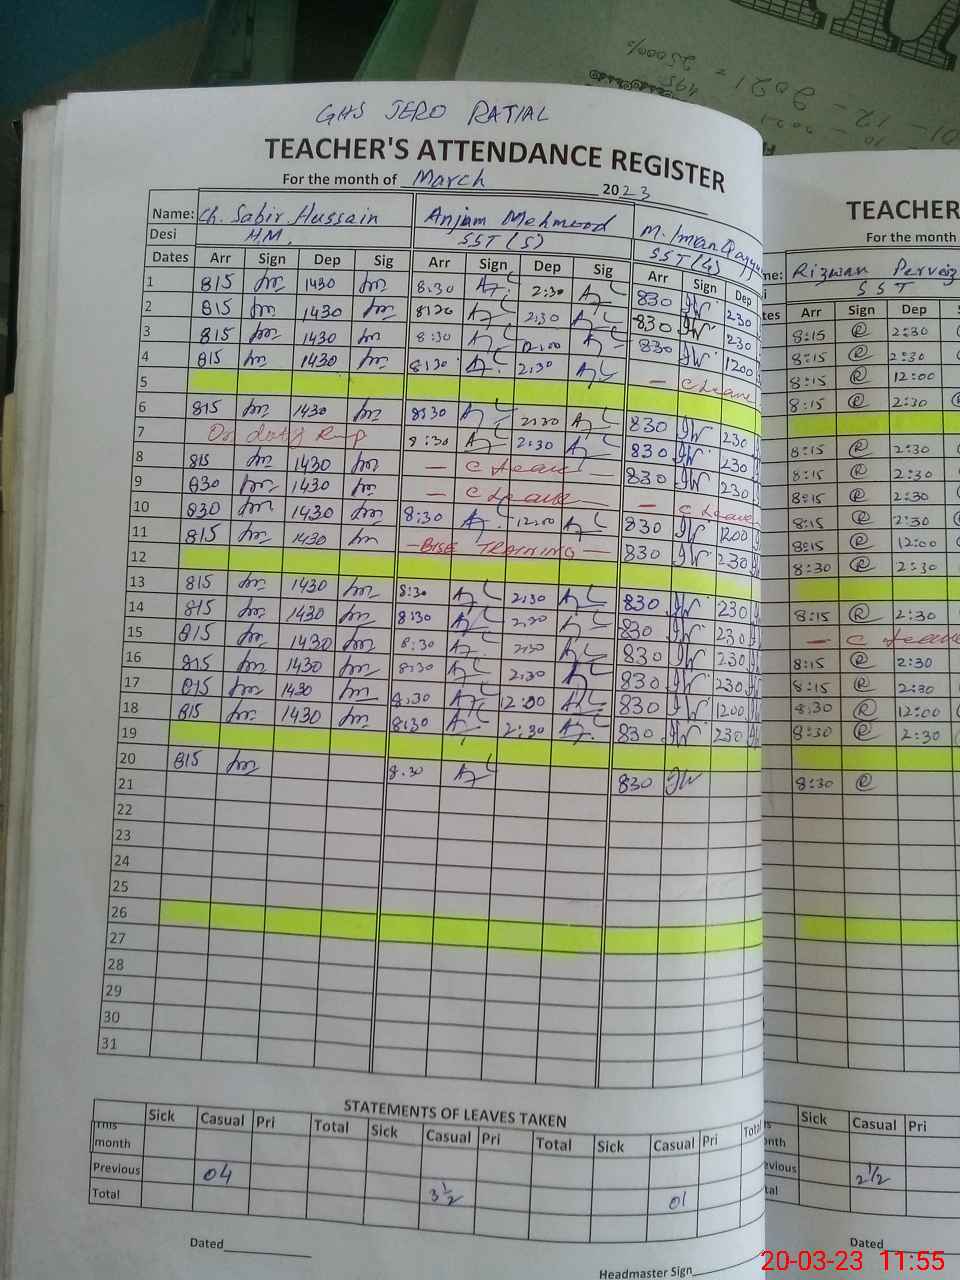 GHS JERO RATIAL
TEACHER'S ATTENDANCE REGISTER
For the month of March 2023
Name: Ch. Sabir Hussain Anjam Mehmood M. Iman Qayyu
Desi H.M. SST(S) SST(G)
Dates Arr Sign Dep Sig Arr Sign Dep Sig Arr Sign Dep
1 815 1430 8:30 2:30 830 230
2 815 1430 8:30 2:30 830 230
3 815 1430 8:30 12:00 830 1200
4 815 1430 8:30 2:30 — C Leave
5
6 815 1430 8:30 2:30 830 230
7 On duty 8:30 2:30 830 230
8 815 1430 — C Leave — 830 230
9 830 1430 — C Leave — — C Leave
10 830 1430 8:30 12:00 830 1200
11 815 1430 — BISE TRAINING — 830 230
12
13 815 1430 8:30 2:30 830 230
14 815 1430 8:30 2:30 830 230
15 815 1430 8:30 2:30 830 230
16 815 1430 8:30 2:30 830 230
17 815 1430 8:30 12:00 830 1200
18 815 1430 8:30 2:30 830 230
19
20 815 8.30 830
21
22
23
24
25
26
27
28
29
30
31
STATEMENTS OF LEAVES TAKEN
Sick Casual Pri Total Sick Casual Pri Total Sick Casual Pri Total
This month
Previous 04 3½ 01
Total
Dated
Headmaster Sign
TEACHER
For the month
Rizwan Perveiz
SST
Arr Sign Dep
8:15 R 2:30
8:15 R 2:30
8:15 R 12:00
8:15 R 2:30
8:15 R 2:30
8:15 R 2:30
8:15 R 2:30
8:15 R 2:30
8:15 R 12:00
8:30 R 2:30
8:15 R 2:30
— C Leave
8:15 R 2:30
8:15 R 2:30
8:30 R 12:00
8:30 R 2:30
8:30 R
Sick Casual Pri
2½
Dated
20-03-23 11:55